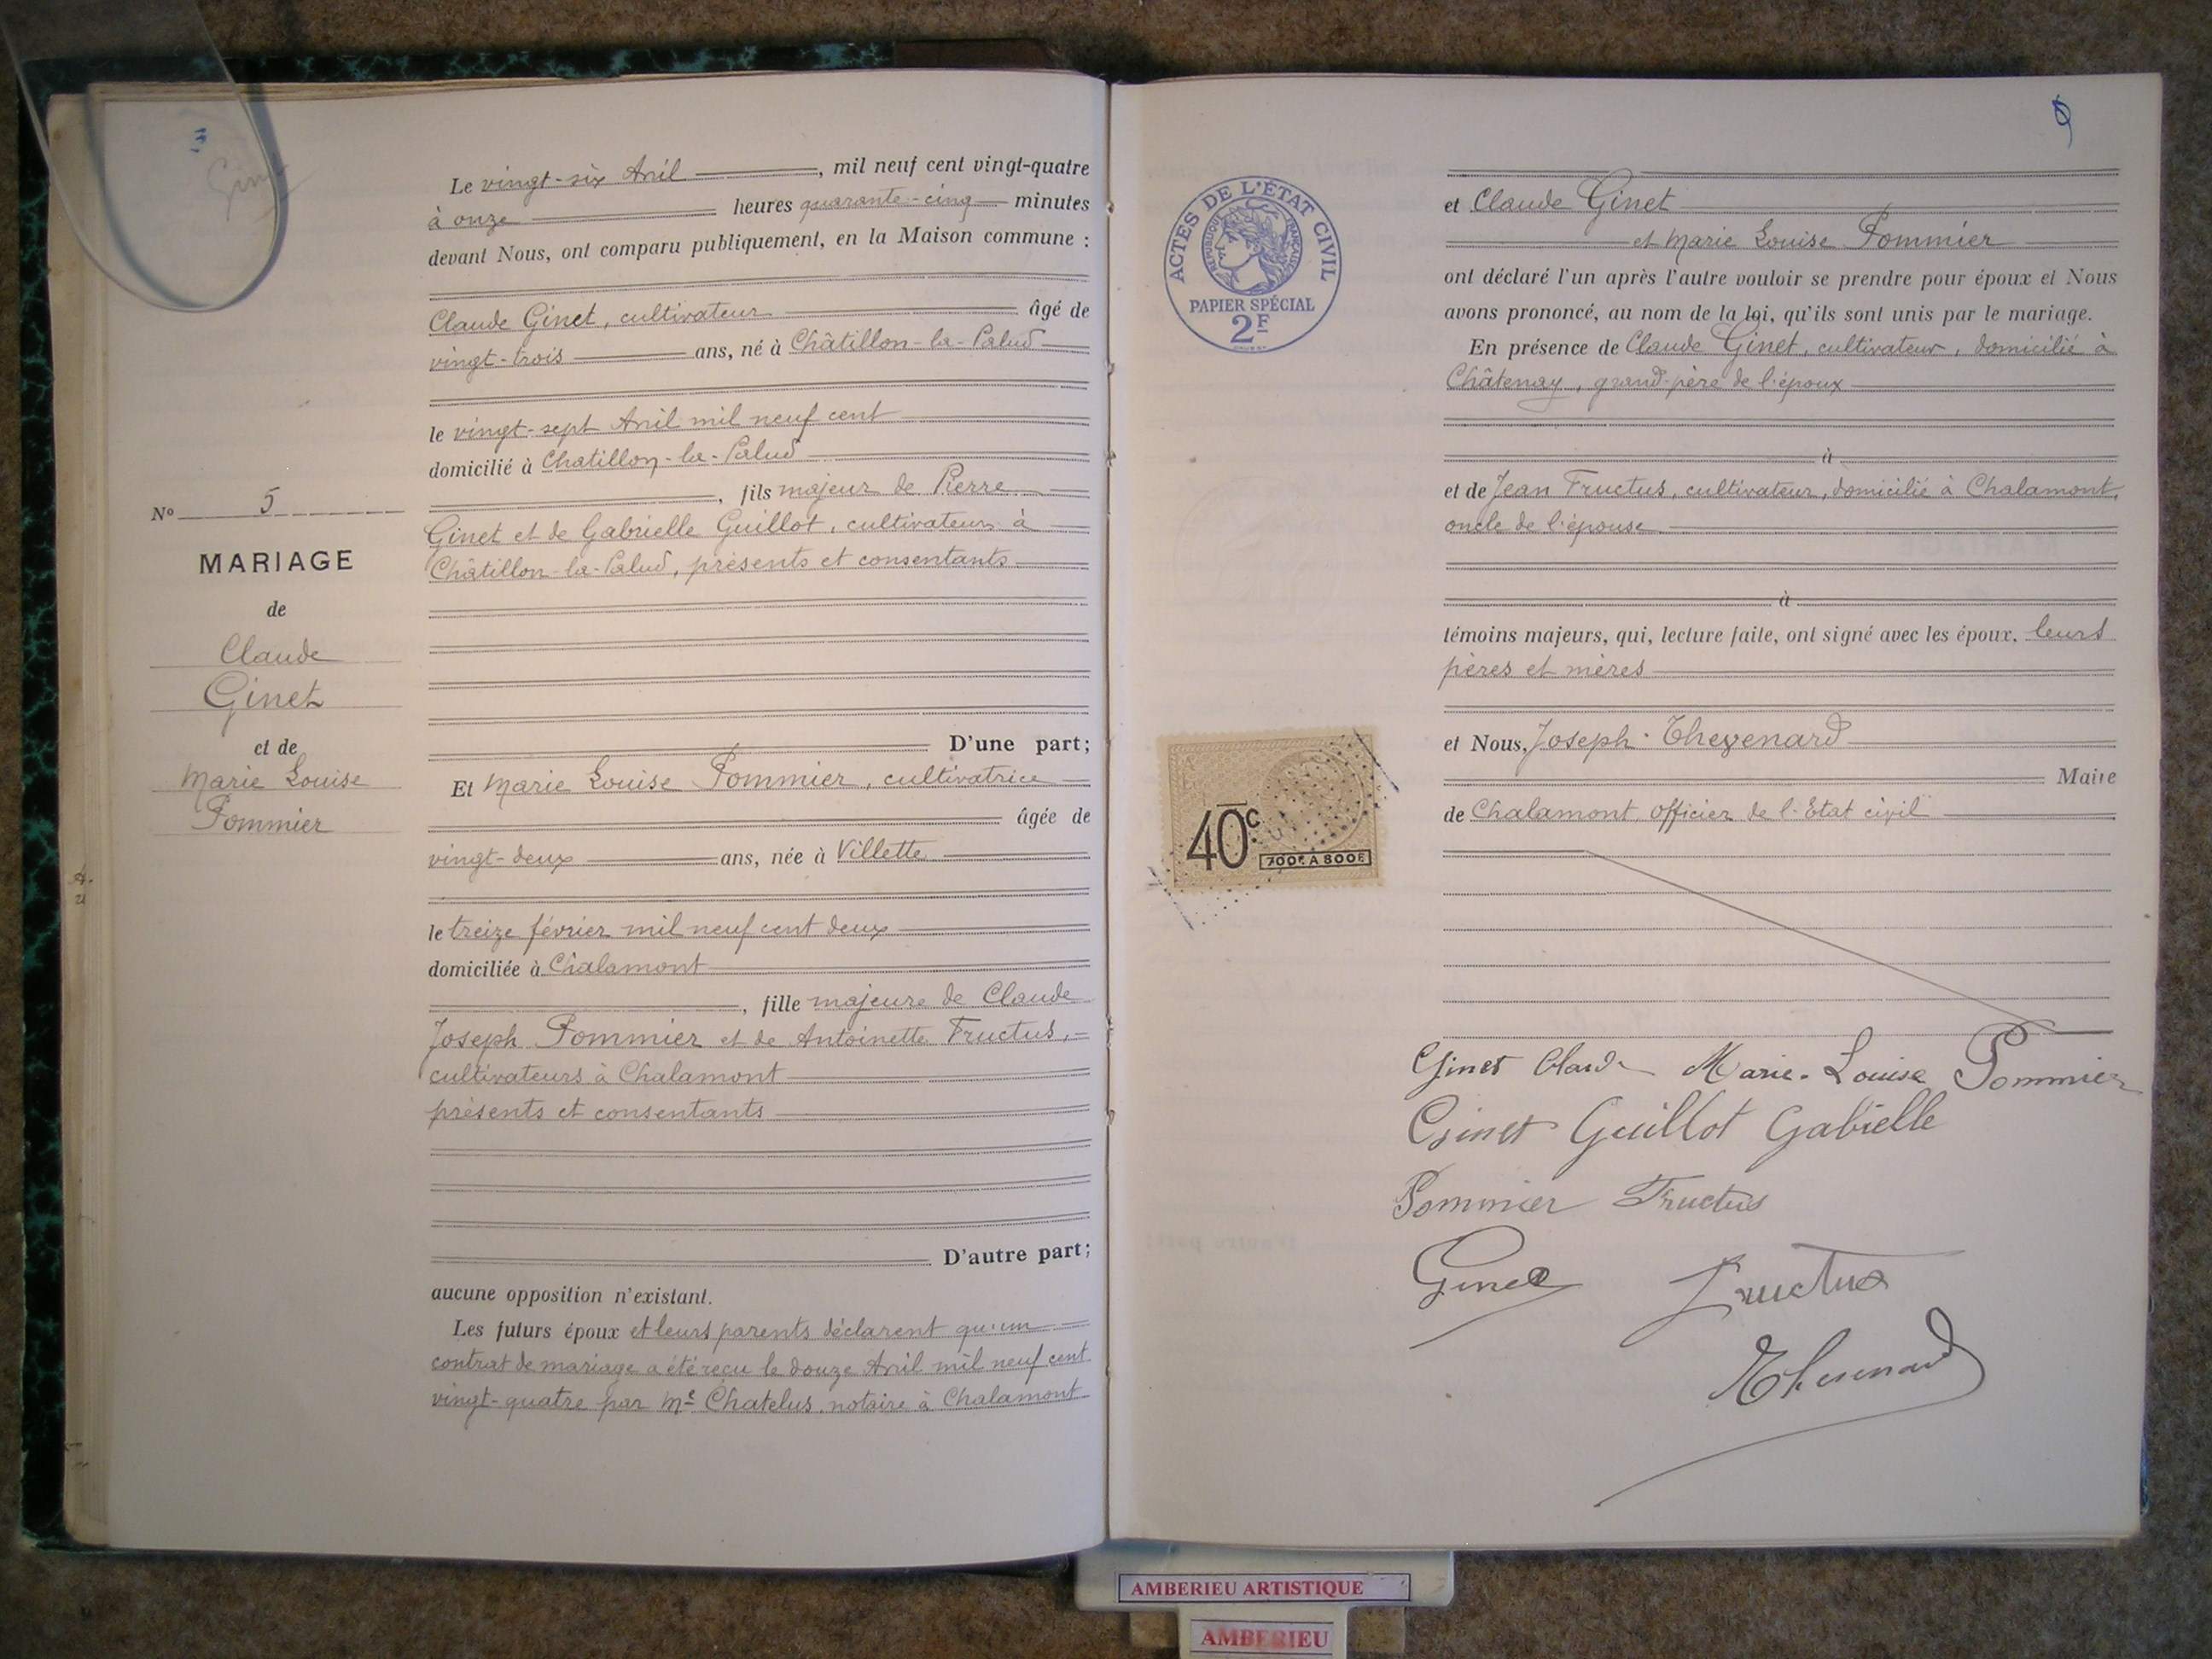 Ginet
Le vingt-six Avril, mil neuf cent vingt-quatre
à onze heures quarante-cinq minutes
devant Nous, ont comparu publiquement, en la Maison commune :
Claude Ginet, cultivateur âgé de
vingt-trois ans, né à Châtillon-la-Palud
le vingt-sept Avril mil neuf cent
domicilié à Chatillon-la-Palud
, fils majeur de Pierre
Ginet et de Gabrielle Guillot, cultivateurs à
Châtillon-la-Palud, présents et consentants
D'une part;
Et Marie Louise Pommier, cultivatrice
âgée de
vingt-deux ans, née à Villette
le treize février mil neuf cent deux
domiciliée à Chalamont
, fille majeure de Claude
Joseph Pommier et de Antoinette Fructus,
cultivateurs à Chalamont
présents et consentants
D'autre part;
aucune opposition n'existant.
Les futurs époux et leurs parents déclarent qu'un
contrat de mariage a été reçu le douze Avril mil neuf cent
vingt-quatre par Me Chatelus, notaire à Chalamont
No 5
MARIAGE
de
Claude
Ginet
et de
Marie Louise
Pommier
ACTES DE L'ÉTAT CIVIL
RÉPUBLIQUE FRANÇAISE
PAPIER SPÉCIAL
2F
40c
700F À 800F
et Claude Ginet
et Marie Louise Pommier
ont déclaré l'un après l'autre vouloir se prendre pour époux et Nous
avons prononcé, au nom de la loi, qu'ils sont unis par le mariage.
En présence de Claude Ginet, cultivateur, domicilié à
Châtenay, grand-père de l'époux
à
et de Jean Fructus, cultivateur, domicilié à Chalamont,
oncle de l'épouse
à
témoins majeurs, qui, lecture faite, ont signé avec les époux, leurs
pères et mères
et Nous, Joseph Thevenard
Maire
de Chalamont officier de l'Etat civil
Ginet Claude Marie-Louise Pommier
Ginet Guillot Gabielle
Pommier Fructus
Ginet Fructus
Thevenard
AMBERIEU ARTISTIQUE
AMBERIEU